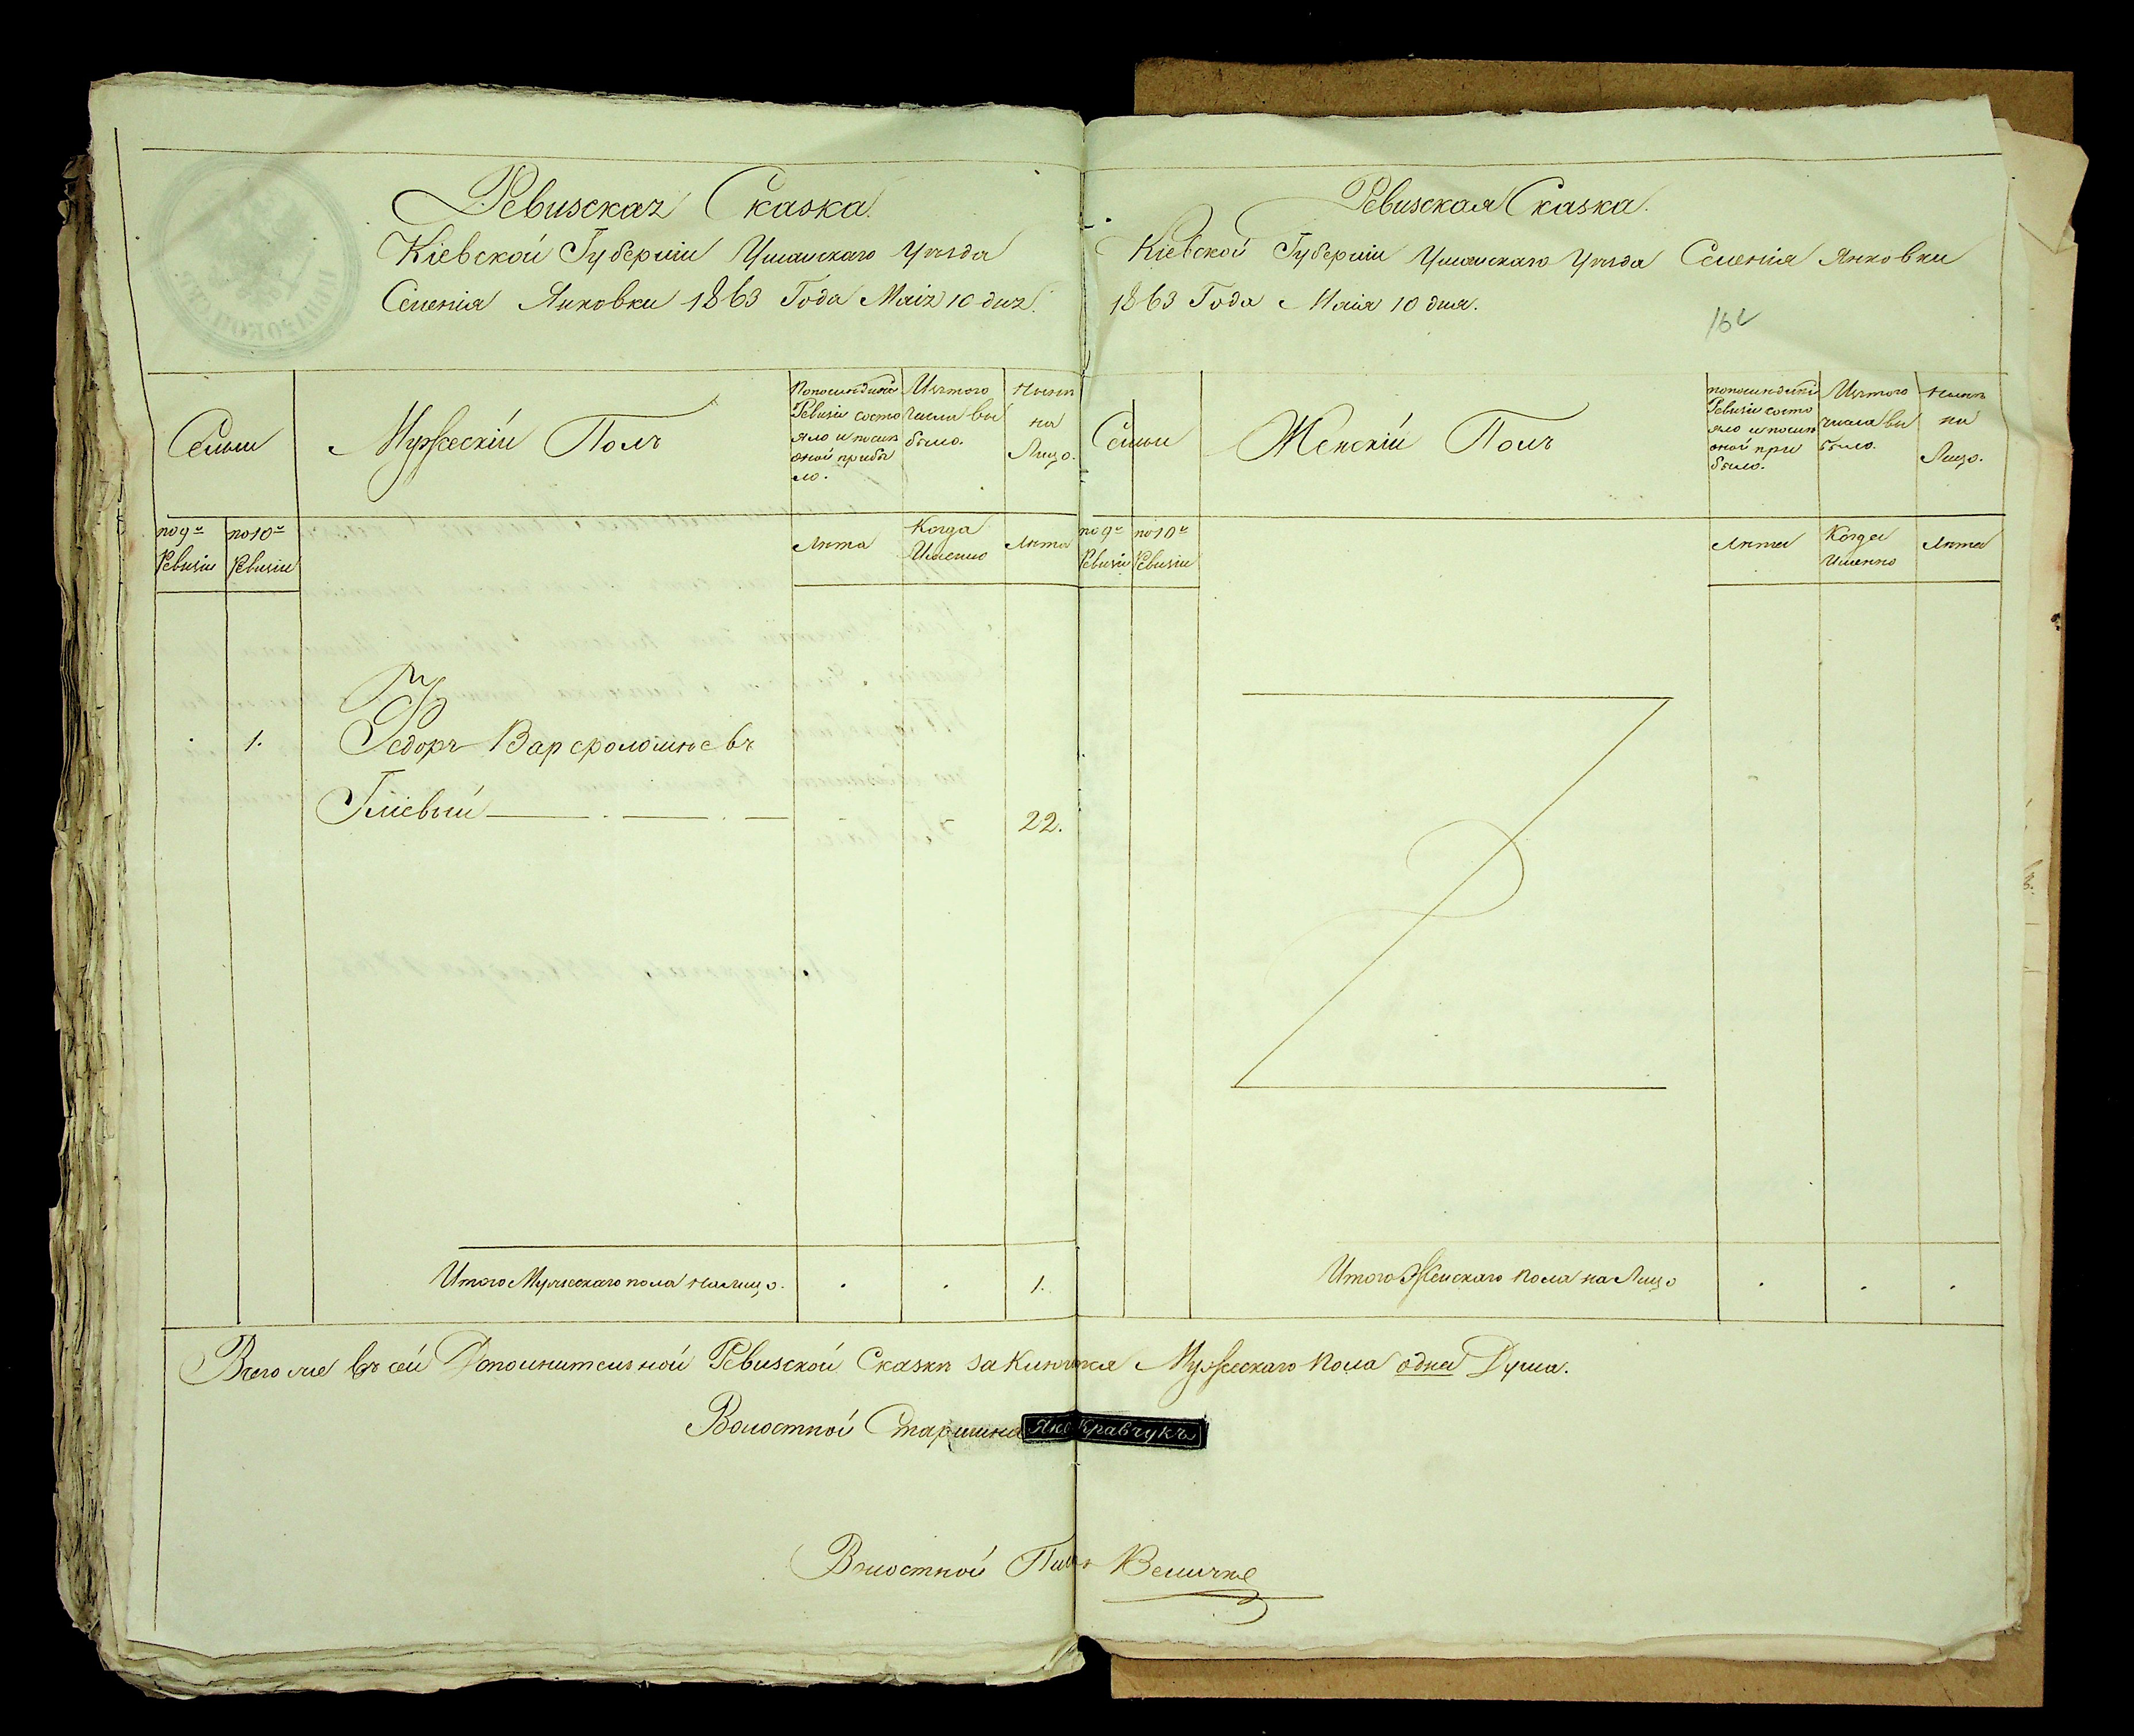 Ревизская Сказка.
Кіевской Губерніи Уманскаго Уѣзда
Селенія Янковки 1863 Года Маія 10 дня.
Семьи
Мужескій Полъ
По послѣдней
Ревизіи состо
яло и послѣ
оной прибы
ло.
Изъ того
числа вы
было.
Нынѣ
на
Лицо.
по 9й
Ревизіи
по 10й
Ревизіи
Лѣта
Когда
Именно
Лѣта
1.
Федоръ Варфоломѣевъ
Гліевый
22.
Итого Мужескаго пола на лицо.
1.
Ревизская Сказка.
Кіевской Губерніи Уманскаго Уѣзда Селенія Янковки
1863 Года Маія 10 дня.
Семьи
Женскій Полъ
по послѣдней
Ревизіи состо
яло и послѣ
оной при
было.
Изъ того
числа вы
было.
Нынѣ
на
Лицо.
по 9й
Ревизіи
по 10й
Ревизіи
Лѣта
Когда
Именно
Лѣта
Итого Женскаго пола на Лицо
Всего же въ сей Дополнительной Ревизской Сказкѣ заключается Мужескаго пола одна Душа.
Волостной Старшина Кравчукъ
Волостной Величко